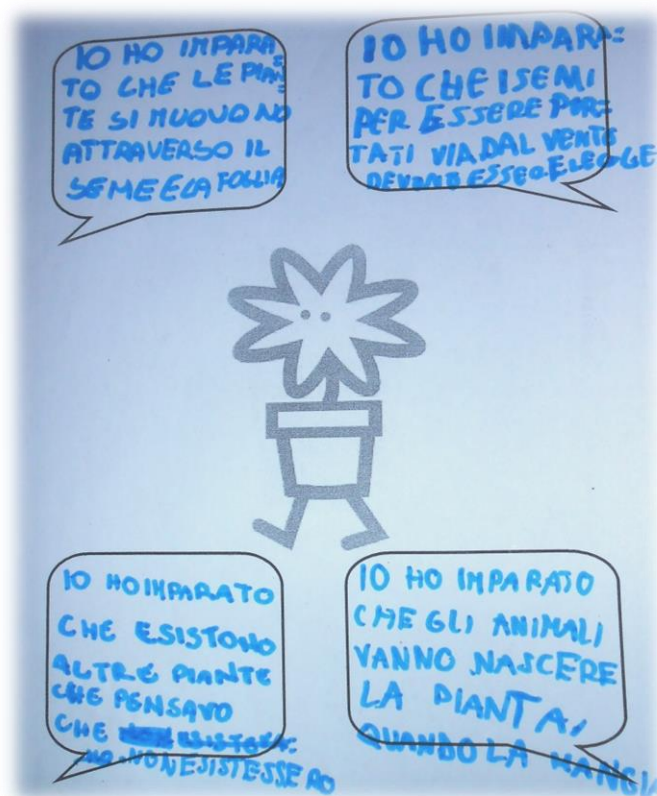 IO HO IMPARA=
TO CHE LE PIAN=
TE SI MUOVONO
ATTRAVERSO IL
SEME E LA FOGLIA
IO HO IMPARA=
TO CHE I SEMI
PER ESSERE POR=
TATI VIA DAL VENTO
DEVONO ESSERE LEGGE
IO HO IMPARATO
CHE ESISTONO
ALTRE PIANTE
CHE PENSAVO
CHE
NON ESISTESSERO
IO HO IMPARATO
CHE GLI ANIMALI
VANNO NASCERE
LA PIANTA,
QUANDO LA MANGIA